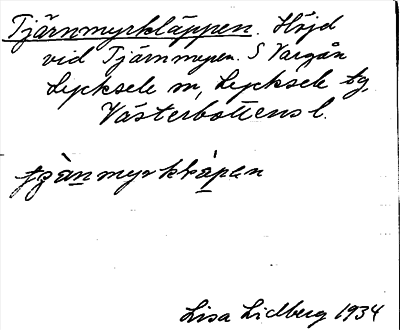 Tjärnmyrkläppen. Höjd
vid Tjärnmyren. S Vargån
Lycksele sn, Lycksele tg,
Västerbottens l.
Lisa Lidberg 1934